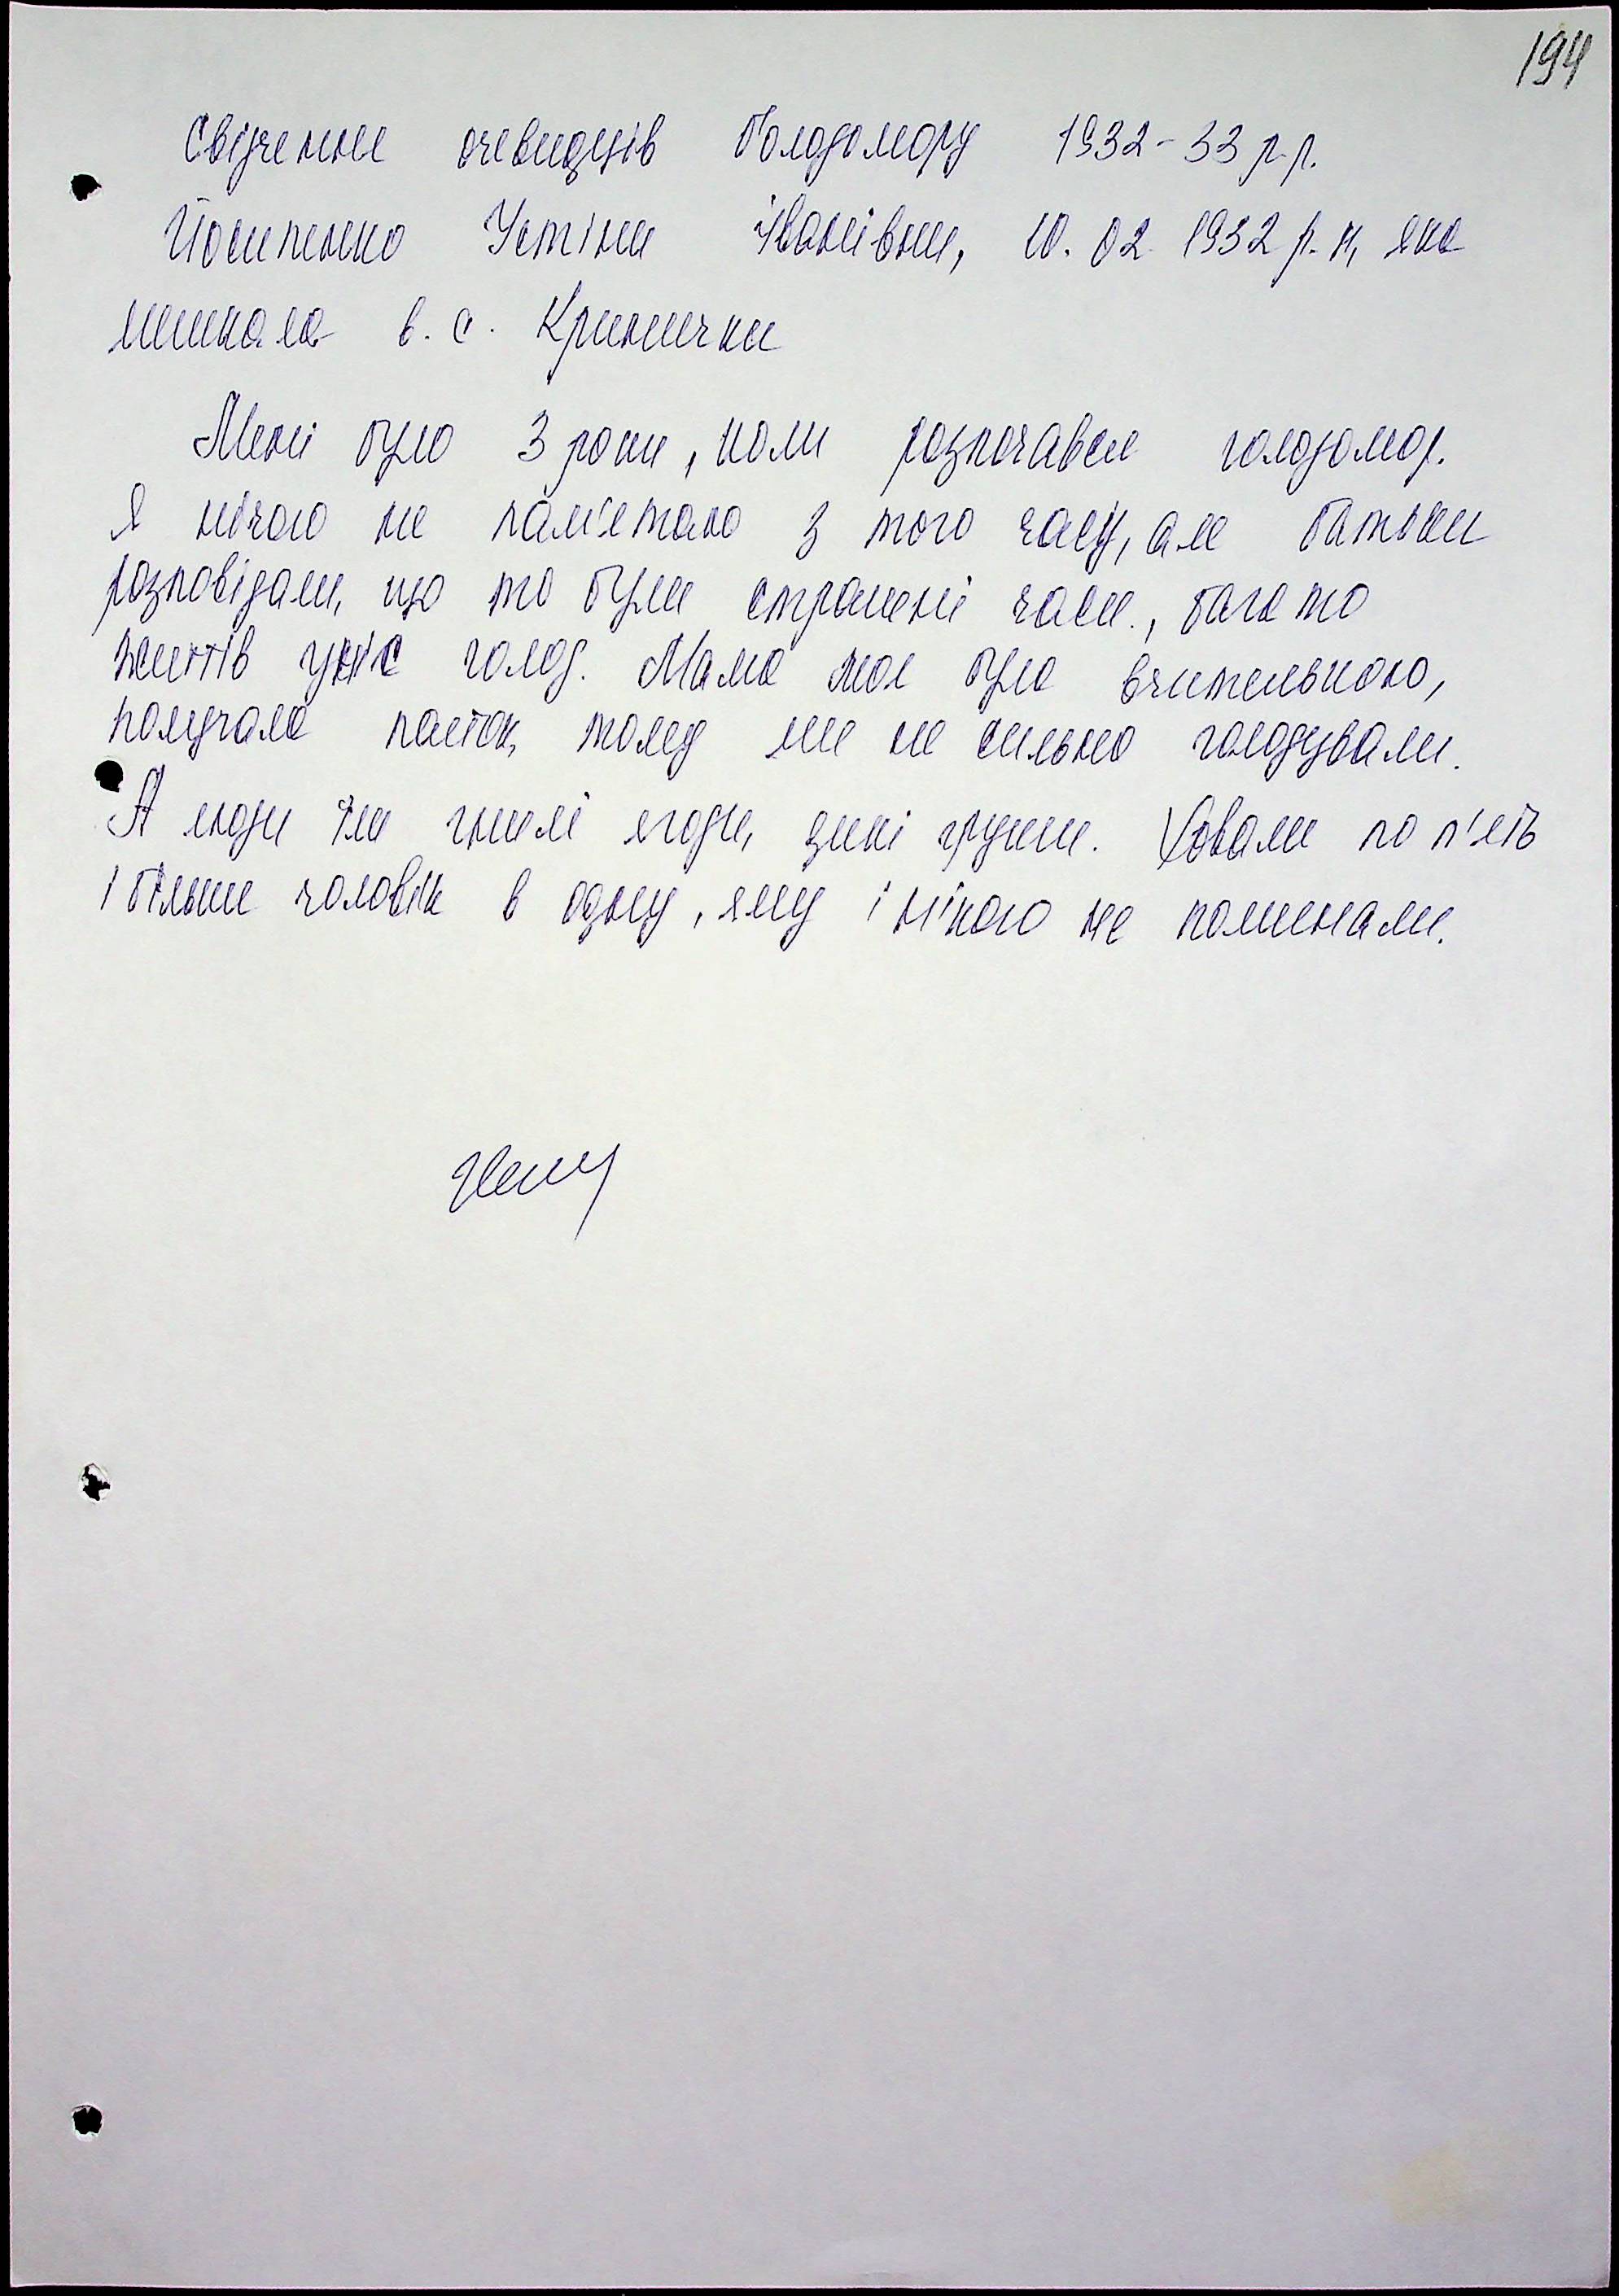 194
Свідчення очевидців Голодомору 1932-33 р.р.
Йосипенко Устіни Іванівни, 10.02.1932 р.н, яка
мешкала в. с. Кринички
Мені було 3 роки, коли розпочався голодомор.
Я нічого не пам'ятаю з того часу, але батьки
розповідали, що то були страшні часи., багато
життів уніс голод. Мама моя була вчителькою,
получала пайок, тому ми не сильно голодували.
А люди їли гнилі ягоди, дикі груши. Ховали по п'ять
і більше чоловік в одну, яму і нікого не поминали.